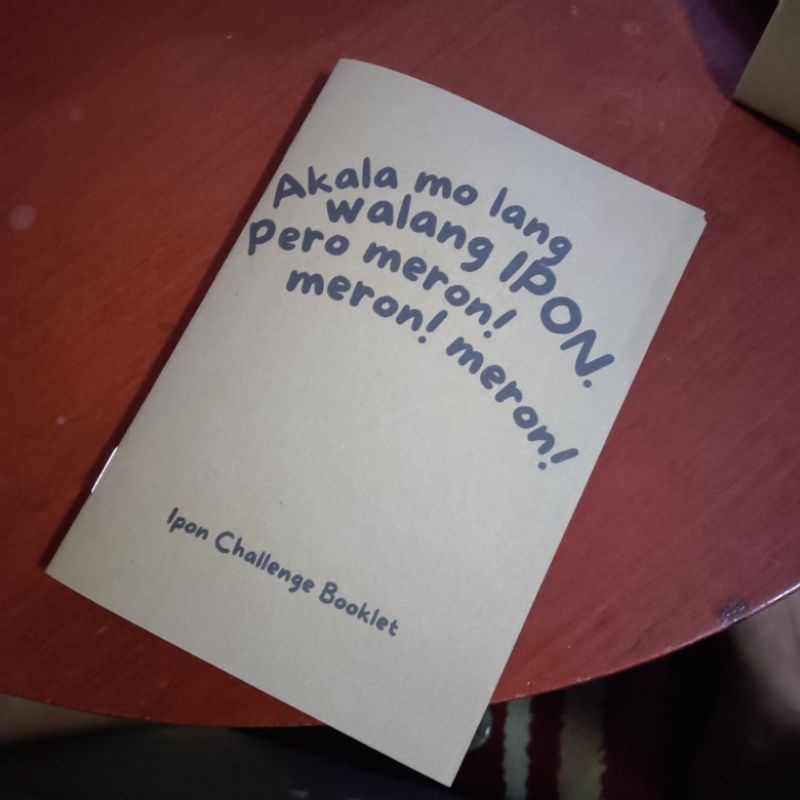 Akala mo lang
walang IPON.
pero meron!
meron! meron!
Ipon Challenge Booklet